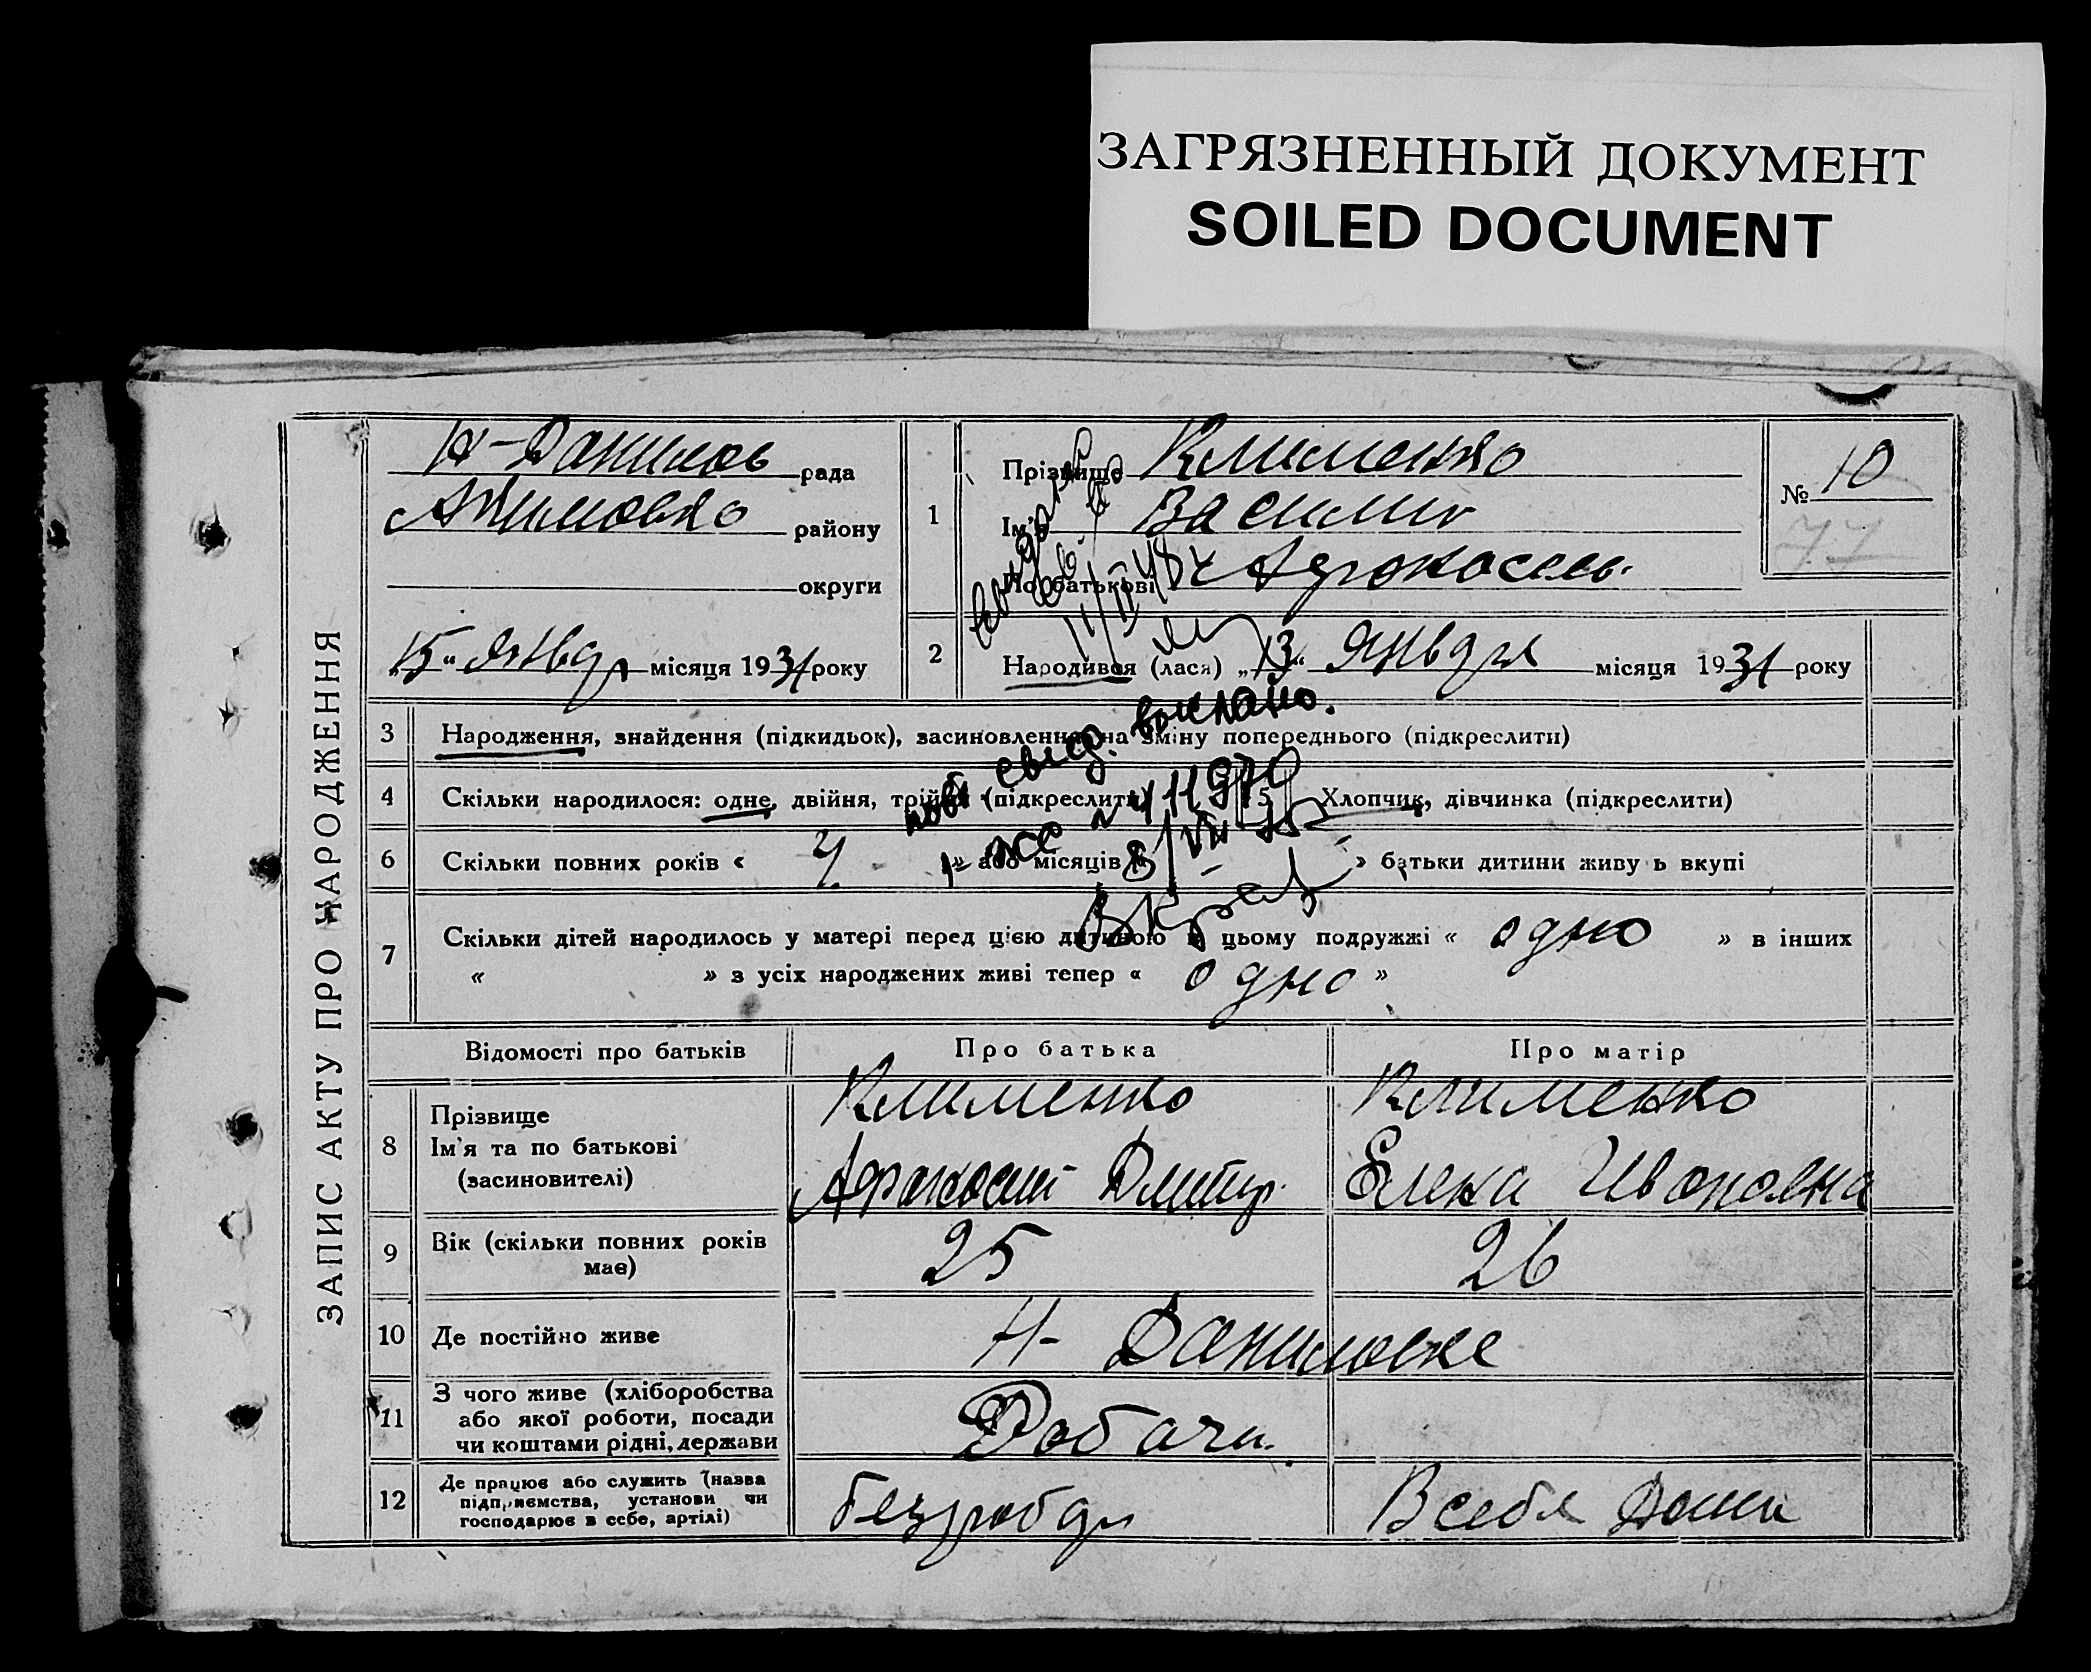 ЗАГРЯЗНЕННЫЙ ДОКУМЕНТ
SOILED DOCUMENT
ЗАПИС АКТУ ПРО НАРОДЖЕННЯ
рада
району
округи
„15“ январ місяця 1931 року
1
Прізвище Клименко
Ім'я Василий
По батькові
№ 10
77
2
Народився (лася) „13“ января місяця 1931 року
3 Народження, знайдення (підкидьок), засиновлення на зміну попереднього (підкреслити)
4 Скільки народилося: одне, двійня, трійня (підкреслити) 5 Хлопчик, дівчинка (підкреслити)
6 Скільки повних років « 4 » або місяців « » батьки дитини живуть вкупі
7 Скільки дітей народилось у матері перед цією дитиною в цьому подружжі « одно » в інших
« » з усіх народжених живі тепер « одно »
Відомості про батьків Про батька Про матір
8 Прізвище Клименко Клименко
Ім'я та по батькові Дмитр. Елена
(засиновителі)
9 Вік (скільки повних років має) 25 26
10 Де постійно живе Н-Даниловке
11 З чого живе (хліборобства
або якої роботи, посади
чи коштами рідні, держави Робочи.
12 Де працює або служить (назва
підприємства, установи чи
господарює в себе, артілі) В себя Дома